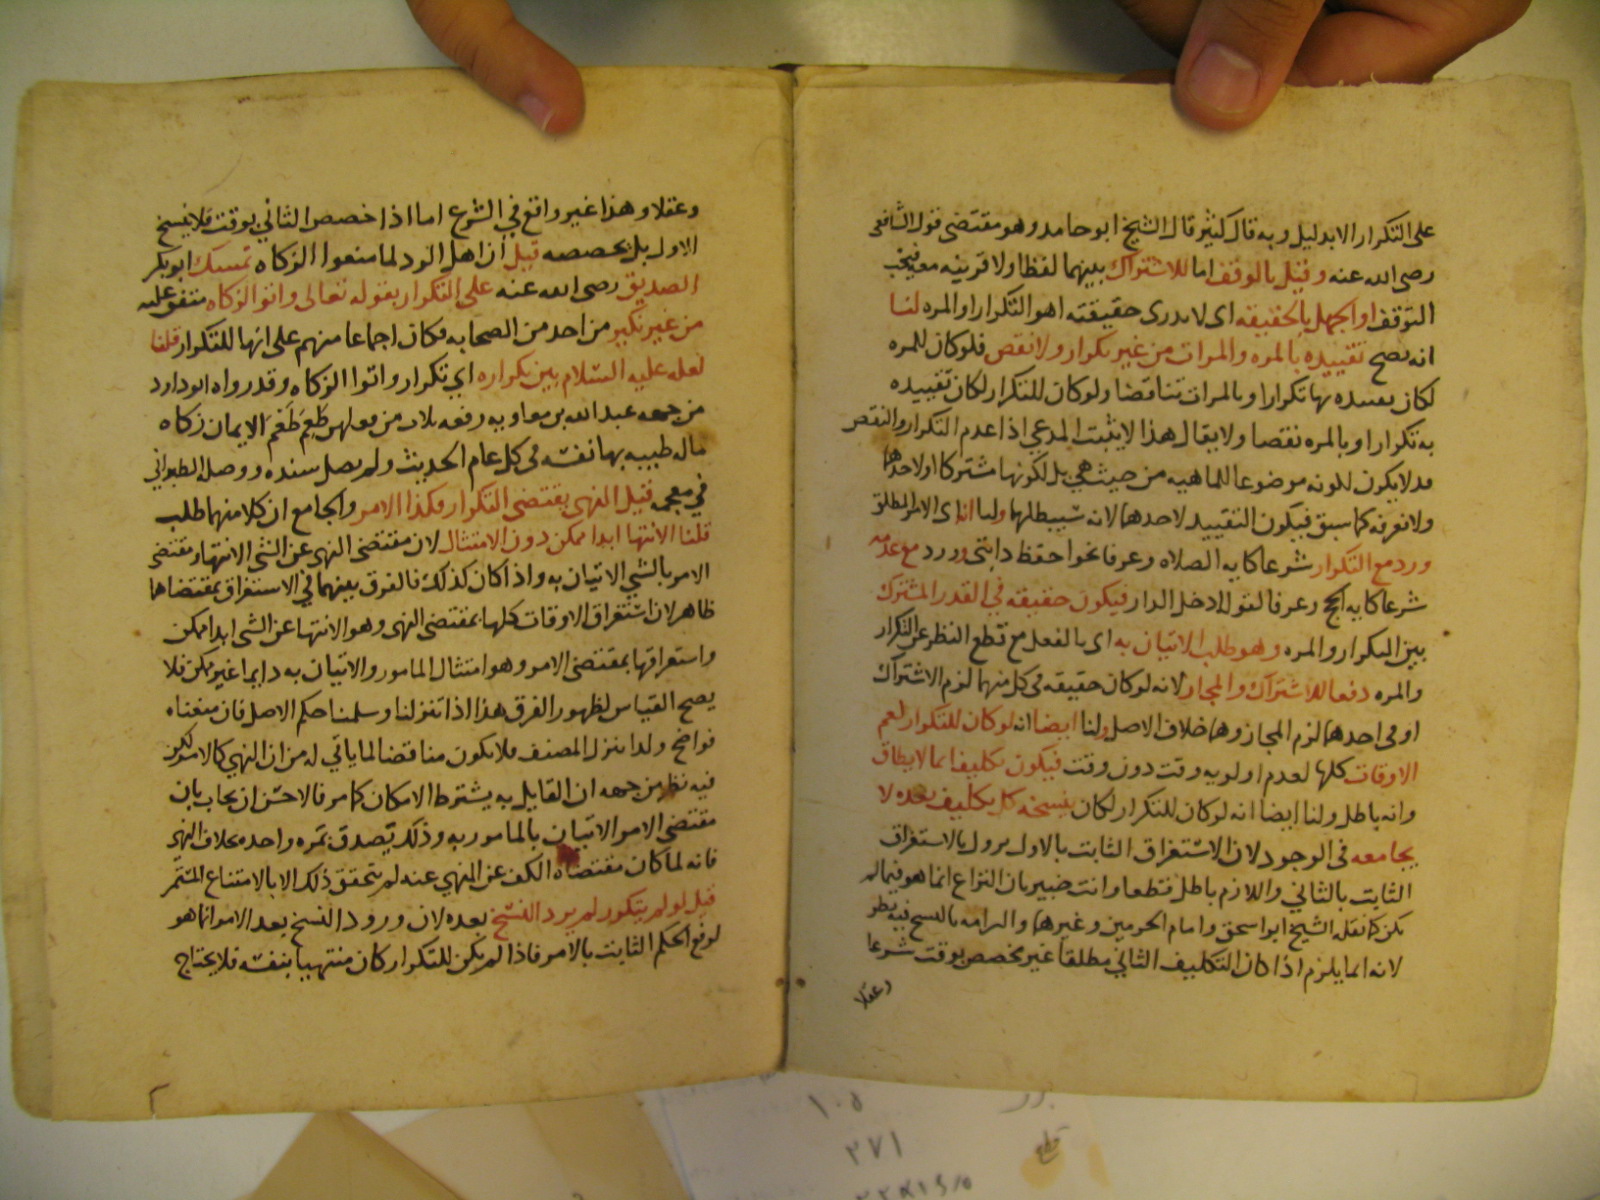 على التكرار الا بدليل وبه قال كثير قال الشيخ ابو حامد وهو مقتضى قول الشافعي
رضى الله عنه وقيل بالوقف اما للاشتراك بينهما لفظا ولا قرينه معه فيجب
التوقف او الجهل بالحقيقه اى لا ندرى حقيقته اهو التكرار او المره لنا
انه يصح تقييده بالمره والمرات من غير تكرار ولا نقص فلو كان للمره
لكان تقييده بها تكرارا وبالمرات تناقضا ولو كان للتكرار لكان تقييده
به تكرارا وبالمره نقصا ولا يقال هذا لا يثبت المدعى اذا عدم التكرار والنقص
قد لا يكون لكونه موضوعا للماهيه من حيث هي بل لكونها مشتركا او لاحدهما
ولا نعرفه كما سبق فيكون التقييد لاحدهما لانه سيبطلهما ولنا انه اى الامر المطلق
ورد مع التكرار شرعا كايه الصلاه وعرفا نحو احفظ دابتى وورد مع عدمه
شرعا كايه الحج وعرفا نحو ادخل الدار فيكون حقيقه في القدر المشترك
بين التكرار والمره وهو طلب الاتيان به اى بالفعل مع قطع النظر عن التكرار
والمره دفعا للاشتراك والمجاز لانه لو كان حقيقه فى كل منهما لزم الاشتراك
او فى احدهما لزم المجاز وهما خلاف الاصل ولنا ايضا انه لو كان للتكرار لعم
الاوقات كلها لعدم اولويه وقت دون وقت فيكون تكليفا بما لا يطاق
وانه باطل ولنا ايضا انه لو كان للتكرار لكان ينسخه كل تكليف بعده لا
يجامعه فى الوجود لان الاستغراق الثابت بالاول يزول بالاستغراق
الثابت بالثاني واللازم باطل قطعا وانت خبير بان النزاع انما هو فيما لم
يكن كما نقله الشيخ ابو اسحق وامام الحرمين وغيرهما والزامه بالنسخ فيه نظر
لانه انما يلزم اذا كان التكليف الثاني مطلقا غير مخصص بوقت شرعا
وعقلا
وعقلا وهذا غير واقع في الشرع اما اذا خصص الثاني بوقت فلا ينسخ
الاول بل يخصصه قيل ان اهل الرد لما منعوا الزكاه تمسك ابو بكر
الصديق رضى الله عنه على التكرار بقوله تعالى واتوا الزكاه متفق عليه
من غير نكير من احد من الصحابه فكان اجماعا منهم على انها للتكرار قلنا
لعله عليه السلام بين تكراره اي تكرار واتوا الزكاه وقد رواه ابو داود
من جهه عبد الله بن معاويه رفعه ثلاث من فعلهن طَعِمَ طَعْمَ الايمان زكاه
ماله طيبه بها نفسه فى كل عام الحديث ولم يصل سنده ووصله الطبراني
في معجمه قيل النهى يقتضى التكرار فكذا الامر والجامع ان كلا منهما طلب
قلنا الانتها ابدا ممكن دون الامتثال لان مقتضى النهى عن الشى الانتها ومقتضى
الامر بالشي الاتيان به واذا كان كذلك فالفرق بينهما في الاستغراق بمقتضاهما
ظاهر لان استغراق الاوقات كلها بمقتضى النهى وهو الانتها عن الشى ابدا ممكن
واستغراقها بمقتضى الامر وهو امتثال المامور والاتيان به دايما غير ممكن فلا
يصح القياس لظهور الفرق هذا اذا تنزلنا وسلمنا حكم الاصل فان منعناه
فواضح ولذا تنزل المصنف فلا يكون مناقضا لما ياتي له من ان النهي كالامر لكن
فيه نظر من جهه ان القايل به يشترط الامكان كما مر فالاحسن ان يجاب بان
مقتضى الامر الاتيان بالمامور به وذلك يصدق بمره واحده بخلاف النهى
فانه لما كان مقتضاه الكف عن المنهي عنه لم يتحقق ذلك الا بالامتناع المستمر
قيل لو لم يتكرر لم يرد النسخ بعده لان ورود النسخ بعد الامر انما هو
لرفع الحكم الثابت بالامر فاذا لم يكن للتكرار كان منتهيا بنفسه فلا يحتاج
١٠٥
٢٧١